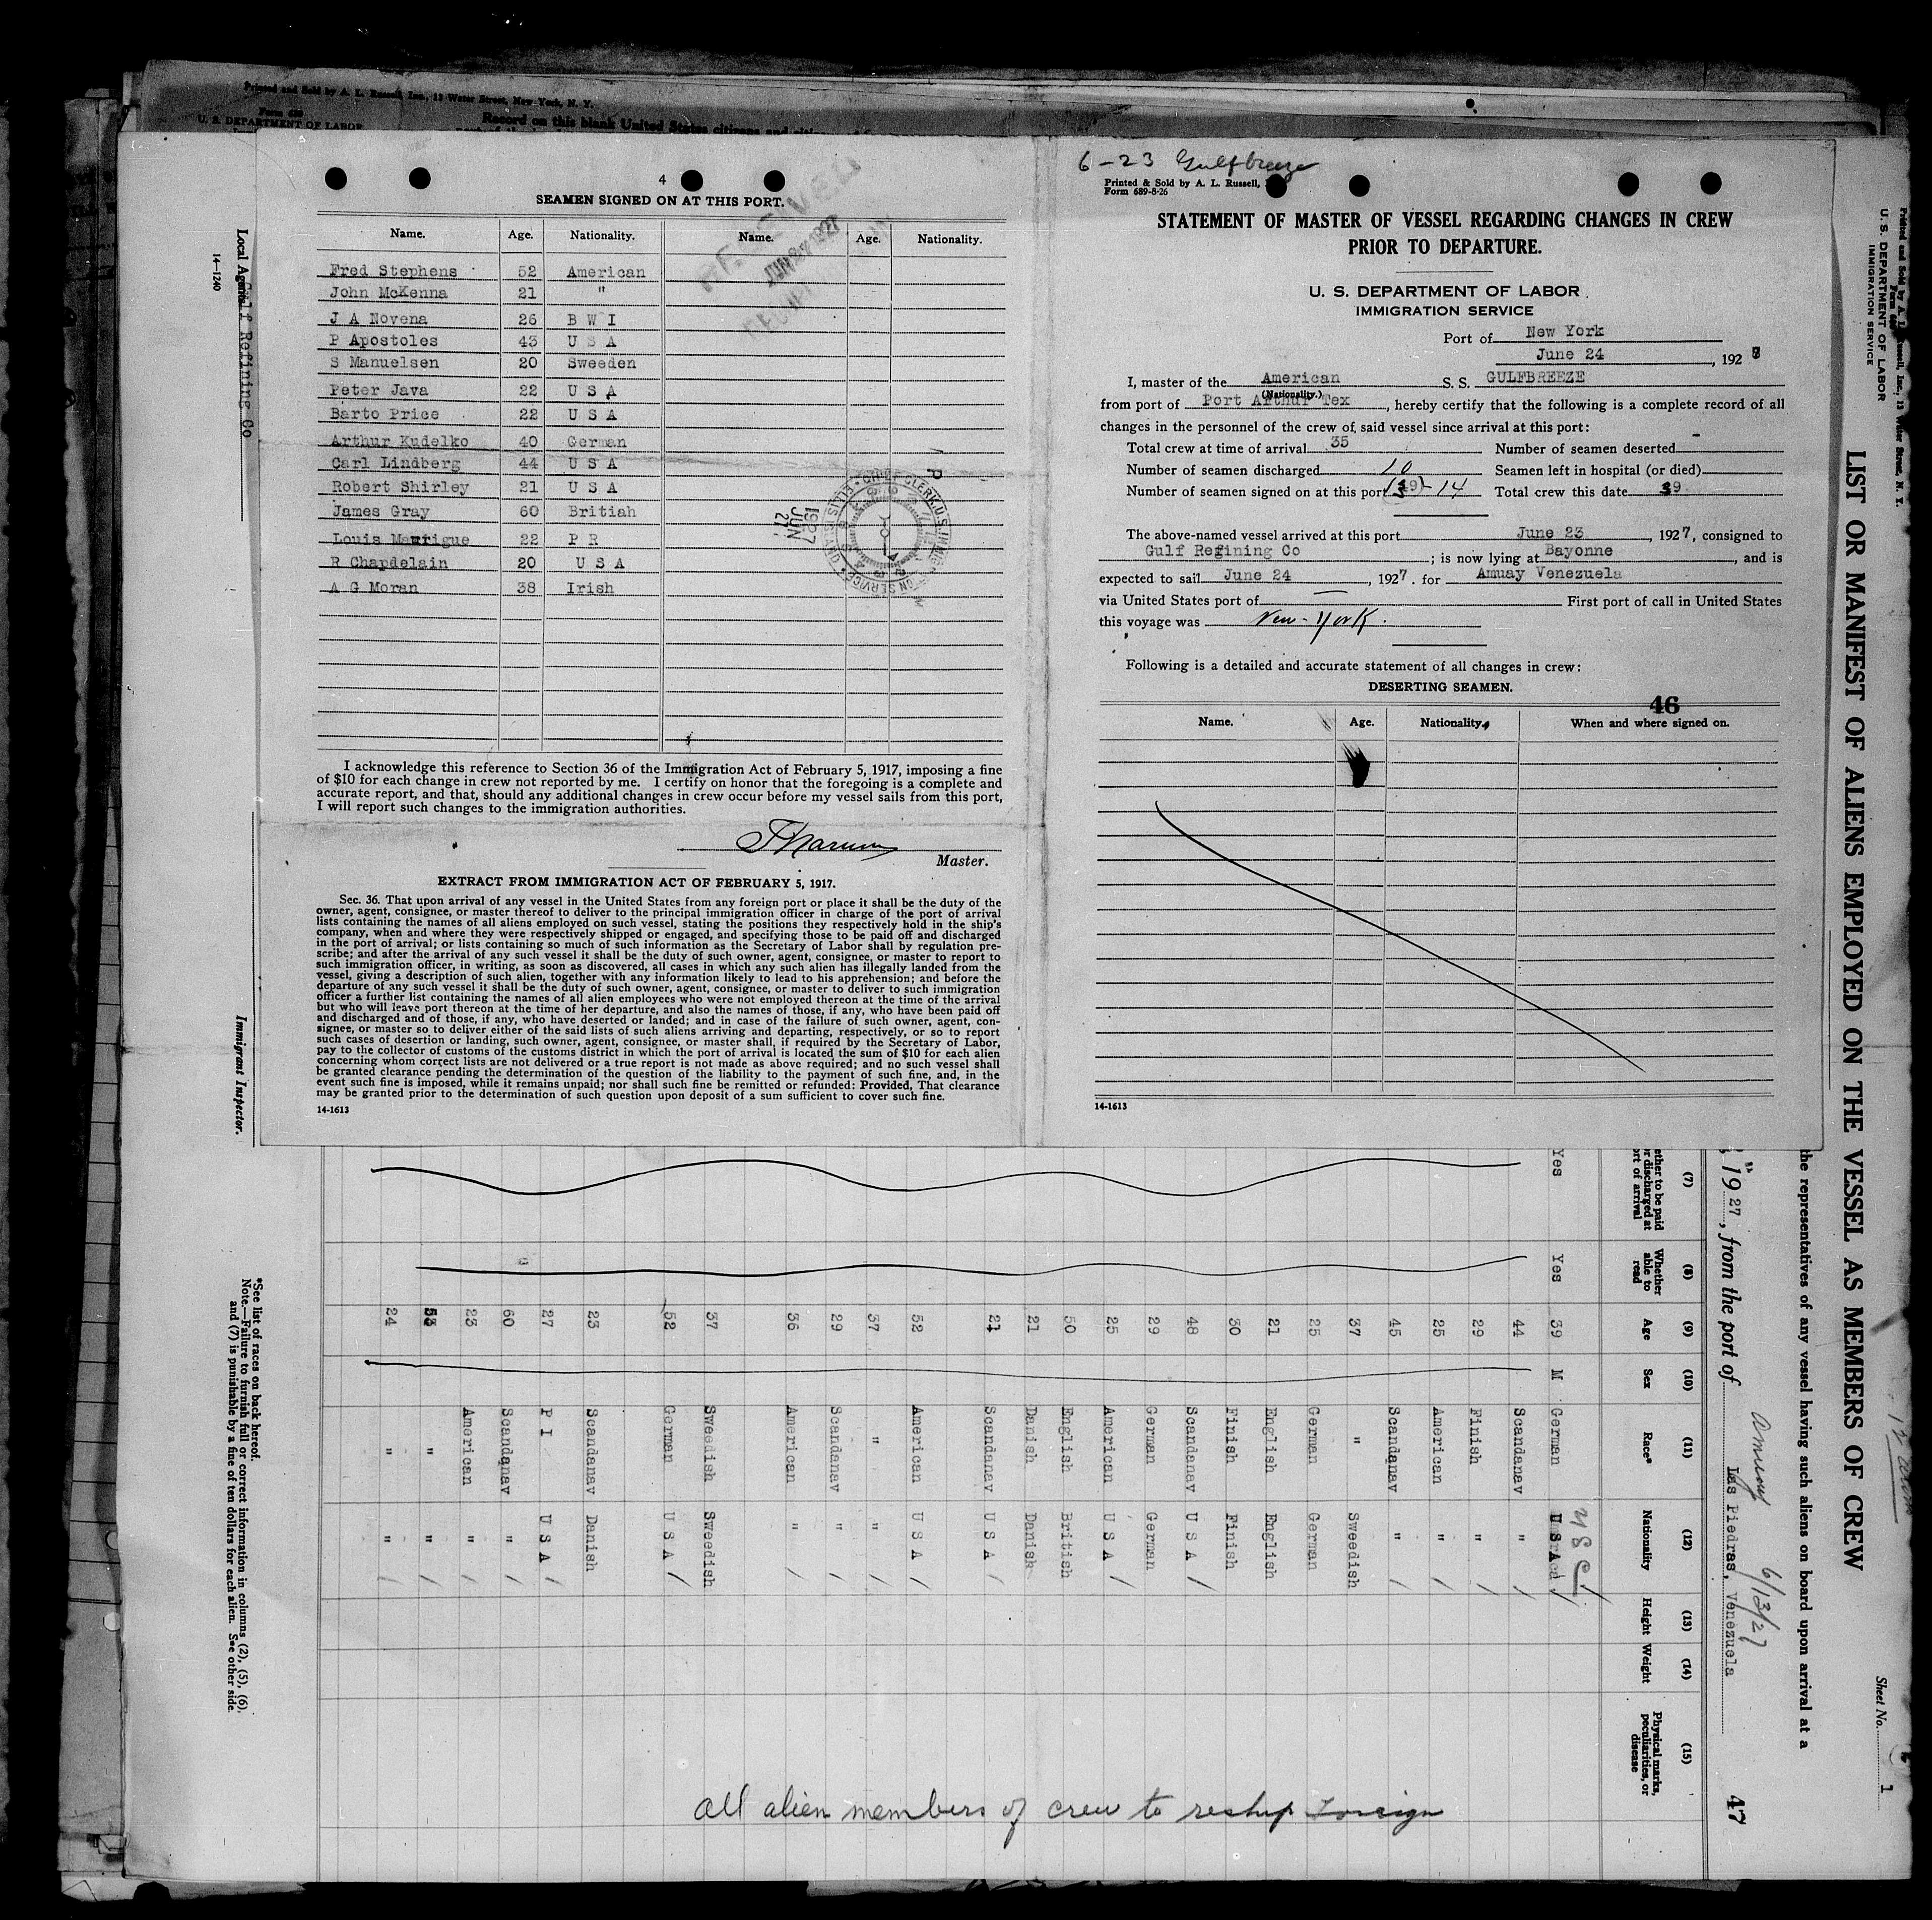 Printed and Sold by A. L. Russell, Inc., 13 Water Street, New York, N. Y.
Form 689
U. S. DEPARTMENT OF LABOR
Record on this blank United States citizens and
4
SEAMEN SIGNED ON AT THIS PORT.
Name. Age. Nationality. Name. Age. Nationality.
Fred Stephens 52 American
John McKenna 21 "
J A Novena 26 B W I
P Apostoles 43 U S A
S Manuelsen 20 Sweeden
Peter Java 22 U S A
Barto Price 22 U S A
Arthur Kudelko 40 German
Carl Lindberg 44 U S A
Robert Shirley 21 U S A
James Gray 60 Britiah
Louis 22 P R
R Chapdelain 20 U S A
A G Moran 38 Irish
RECEIVED
1927 JUN 27
I acknowledge this reference to Section 36 of the Immigration Act of February 5, 1917, imposing a fine
of $10 for each change in crew not reported by me. I certify on honor that the foregoing is a complete and
accurate report, and that, should any additional changes in crew occur before my vessel sails from this port,
I will report such changes to the immigration authorities.
Master.
EXTRACT FROM IMMIGRATION ACT OF FEBRUARY 5, 1917.
Sec. 36. That upon arrival of any vessel in the United States from any foreign port or place it shall be the duty of the
owner, agent, consignee, or master thereof to deliver to the principal immigration officer in charge of the port of arrival
lists containing the names of all aliens employed on such vessel, stating the positions they respectively hold in the ship's
company, when and where they were respectively shipped or engaged, and specifying those to be paid off and discharged
in the port of arrival; or lists containing so much of such information as the Secretary of Labor shall by regulation pre-
scribe; and after the arrival of any such vessel it shall be the duty of such owner, agent, consignee, or master to report to
such immigration officer, in writing, as soon as discovered, all cases in which any such alien has illegally landed from the
vessel, giving a description of such alien, together with any information likely to lead to his apprehension; and before the
departure of any such vessel it shall be the duty of such owner, agent, consignee, or master to deliver to such immigration
officer a further list containing the names of all alien employees who were not employed thereon at the time of the arrival
but who will leave port thereon at the time of her departure, and also the names of those, if any, who have been paid off
and discharged and of those, if any, who have deserted or landed; and in case of the failure of such owner, agent, con-
signee, or master so to deliver either of the said lists of such aliens arriving and departing, respectively, or so to report
such cases of desertion or landing, such owner, agent, consignee, or master shall, if required by the Secretary of Labor,
pay to the collector of customs of the customs district in which the port of arrival is located the sum of $10 for each alien
concerning whom correct lists are not delivered or a true report is not made as above required; and no such vessel shall
be granted clearance pending the determination of the question of the liability to the payment of such fine, and, in the
event such fine is imposed, while it remains unpaid; nor shall such fine be remitted or refunded: Provided, That clearance
may be granted prior to the determination of such question upon deposit of a sum sufficient to cover such fine.
14-1613
6-23 Gulfbreeze
Printed & Sold by A. L. Russell,
Form 689-8-26
STATEMENT OF MASTER OF VESSEL REGARDING CHANGES IN CREW
PRIOR TO DEPARTURE.
U. S. DEPARTMENT OF LABOR
IMMIGRATION SERVICE
Port of New York
June 24, 192
I, master of the American S. S. GULFBREEZE
(Nationality.)
from port of Port Arthur Tex, hereby certify that the following is a complete record of all
changes in the personnel of the crew of said vessel since arrival at this port:
Total crew at time of arrival 35 Number of seamen deserted -
Number of seamen discharged 10 Seamen left in hospital (or died)
Number of seamen signed on at this port 14 Total crew this date 39
The above-named vessel arrived at this port June 23, 1927, consigned to
Gulf Refining Co; is now lying at Bayonne, and is
expected to sail June 24, 1927. for Amuay Venezuela
via United States port of — First port of call in United States
this voyage was New-York.
Following is a detailed and accurate statement of all changes in crew:
DESERTING SEAMEN.
46
Name. Age. Nationality. When and where signed on.
14-1613
Local Agents Gulf Refining Co
14-1240
Immigrant Inspector.
Printed and Sold by A. L. Russell, Inc., 13 Water Street, N. Y.
U. S. DEPARTMENT OF LABOR
IMMIGRATION SERVICE
Sheet No. 1
LIST OR MANIFEST OF ALIENS EMPLOYED ON THE VESSEL AS MEMBERS OF CREW
the representatives of any vessel having such aliens on board upon arrival at a
Amuay 6/13/27
1927, from the port of Las Piedras, Venezuela
47
(7) (8) (9) (10) (11) (12) (13) (14) (15)
ether to be paid r discharged at ort of arrival Whether able to read Age Sex Race* Nationality Height Weight Physical marks, peculiarities, or disease
USC
Yes Yes 39 M German
44 Scandanav "
29 Finish "
25 American "
45 Scandanav "
37 " Swedish
25 German German
21 English English
30 Finish Finish
48 Scandanav U S A
29 German German
25 American U S A
50 English British
21 Danish Danish
21 Scandanav U S A
52 American U S A
37 " "
29 Scandanav "
36 American "
37 Sweedish Sweedish
52 German U S A
23 Scandanav Danish
27 P I U S A
60 Scandanav "
23 American "
53 " "
24 " "
All alien members of crew to reship foreign
*See list of races on back hereof.
Note.—Failure to furnish full or correct information in columns (2), (5), (6),
and (7) is punishable by a fine of ten dollars for each alien. See other side.